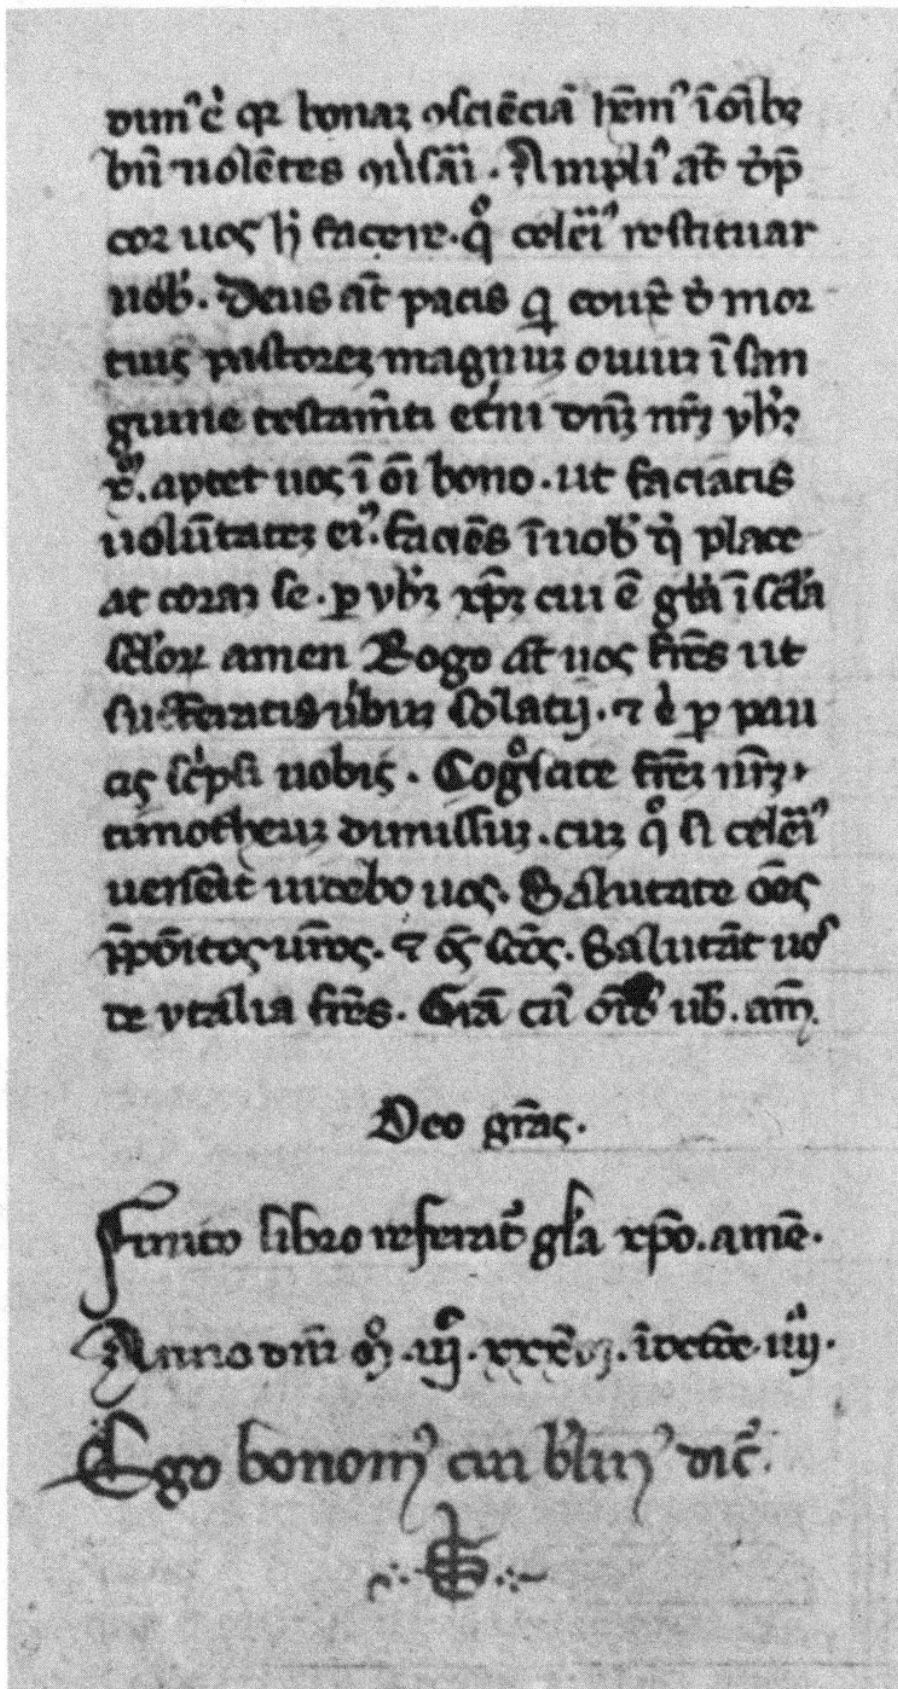 dimꝰ ẽ qꝛ bonaꝫ ꝯsciẽciã hẽmꝰ ĩ oĩbꝫ
bñ uolẽtes ꝯũsãi. Ampliꝰ aũt dp̃
cor uos h̃ facere. qͦ celeriꝰ restituar
uob̾. Deus aũt pacis q̣ eduxit de mor
tuis pastoreꝫ magnuꝫ ouiuꝫ ĩ san
guine testamẽti et̾ni dnꝫ nr̃ꝫ yhꝫ
aptet uos ĩ oĩ bono. ut faciatis
uolũtateꝫ eiꝰ. faciẽs ĩ uob̾ place
at coraꝫ se. ꝑ yhꝫ xp̃ꝫ cui ẽ gl̃a ĩ sc̃la
sc̃loꝝ amen Rogo aũt uos fr̃es ut
sufferatis ũbuꝫ solatij. ⁊ ꝑ pau
cis sc̾psi uobis. Cogͦscite fr̃eꝫ nr̃ꝫ
timotheuꝫ dimissuꝫ. cuꝫ qͦ si celeriꝰ
uen̾it uidebo uos. Salutate oẽs
p̃põitos ur̃os. ⁊ oẽs sc̃os. Salutãt uos
de ytalia fr̃es. Gr̃a cũ oĩb̾ ub̾. am̃.
Deo gr̃as.
Finito libro referat̾ gl̃a xp̃o. amẽ.
Anno dñi mͦ. iijͨ. ĩdctõe. iiij.
Ego bonomꝰ cui dic̃.